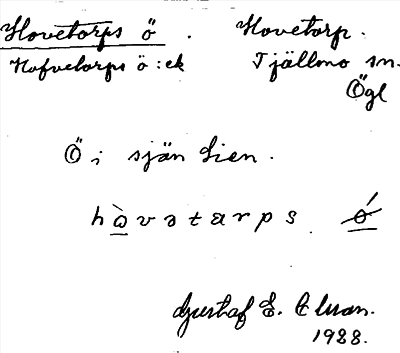 Hovetorps ö . Hovetorp.
Hofvetorps ö : ek Tjällmo sn.
Ögl
Ö i sjön Lien.
hò̲vətɑrps ǿ̲
Gustaf E.
1928.